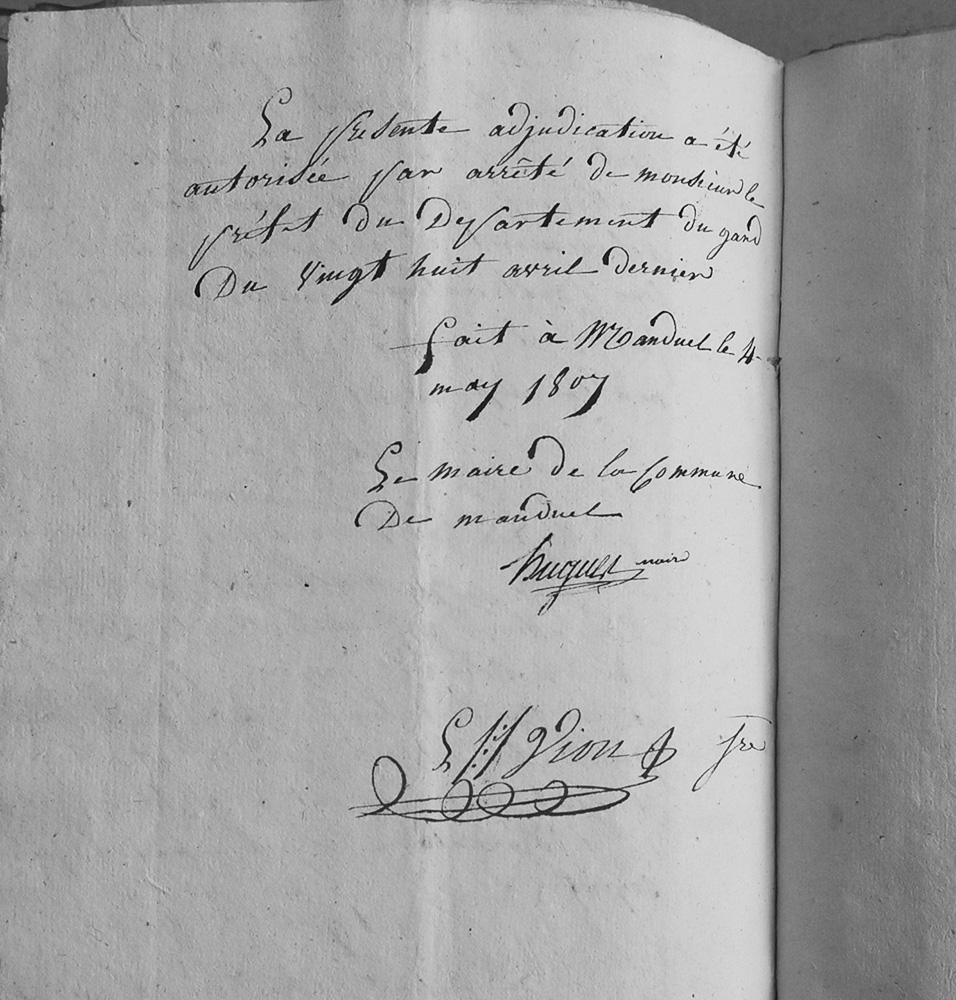 La presente adjudication a été
autorisée par arrêté de monsieur le
préfet du Departement du gard
Du Vingt huit avril dernier
fait à Manduel le 4
may 1807
Le maire de la Commune
De manduel
huguet maire
Vion sre